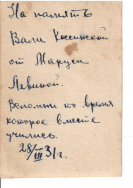 На память
Вали Коссинской
от Маруси
Левиной.
Вспомни то время
которое вместе
учились.
28/III 31 г.